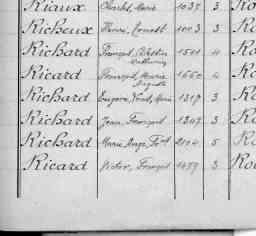 Riaux Charles, Marie 1037 3 Ro
Richeux Pierre, Ernest 1003 3 Ro
Richard François, Célestin 1501 4 Ro
Ricard François, Marie Auguste 1660 4 Ro
Richard Eugène, Marie 1319 3 Ro
Richard Jean, François 1349 3 Ro
Richard Marie, Ange, Fois 2104 5 Ro
Ricard Victor, François 1477 3 Ro